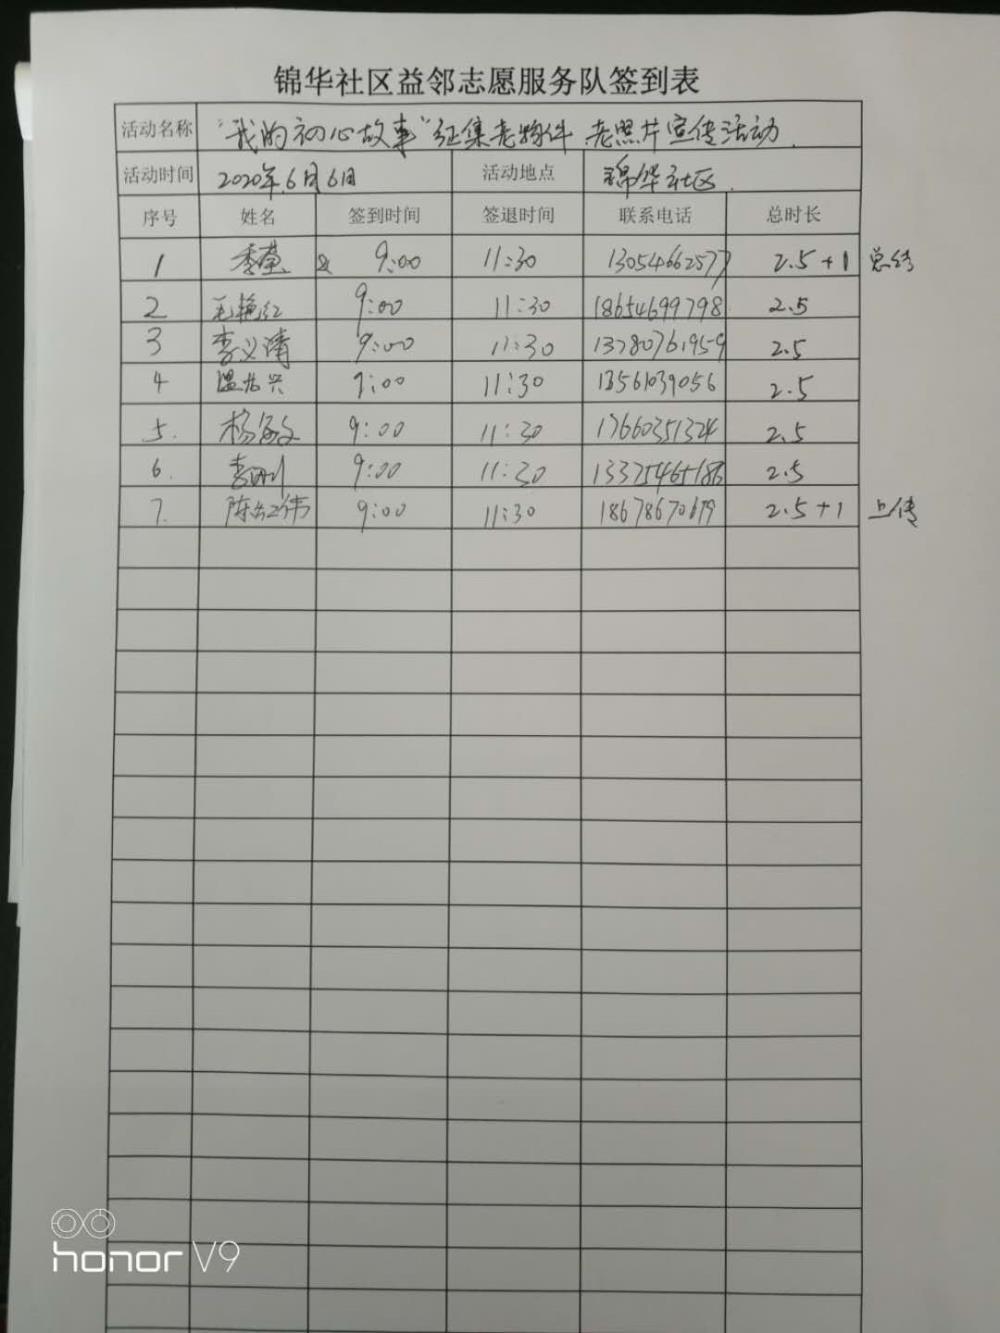 锦华社区益邻志愿服务队签到表
活动名称 “我的初心故事”征集老物件 老照片宣传活动.
活动时间 2020年6月6日 活动地点 锦华社区.
序号 姓名 签到时间 签退时间 联系电话 总时长
1 9:00 11:30 13054662577 2.5+1 总结
2 毛艳红 9:00 11:30 18654699798 2.5
3 李义清 9:00 11:30 13780761959 2.5
4 9:00 11:30 13561039056 2.5
5. 杨敏文 9:00 11:30 17660351324 2.5
6. 李刚 9:00 11:30 2.5
7. 9:00 11:30 18678670619 2.5+1 上传
honor V9